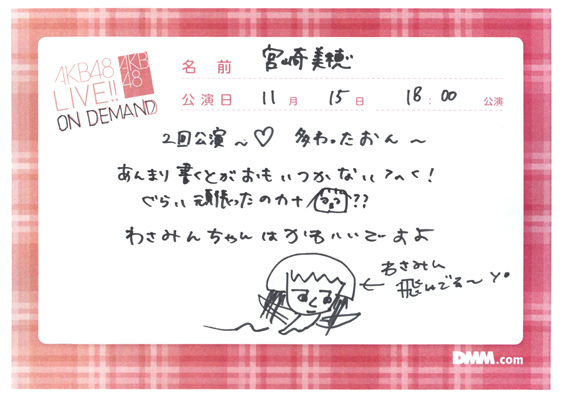 AKB48
LIVE!!
ON DEMAND
AKB
48
名前 宮崎美穂
公演日 11月 15日 18:00 公演
2回公演〜♡ 終わったおん〜
あんまり書くとがおもいつかないい
ぐらい頑張ったのカナ ??
わさみんちゃんはかわいいですよ
わさみん
飛んでる〜
DMM.com